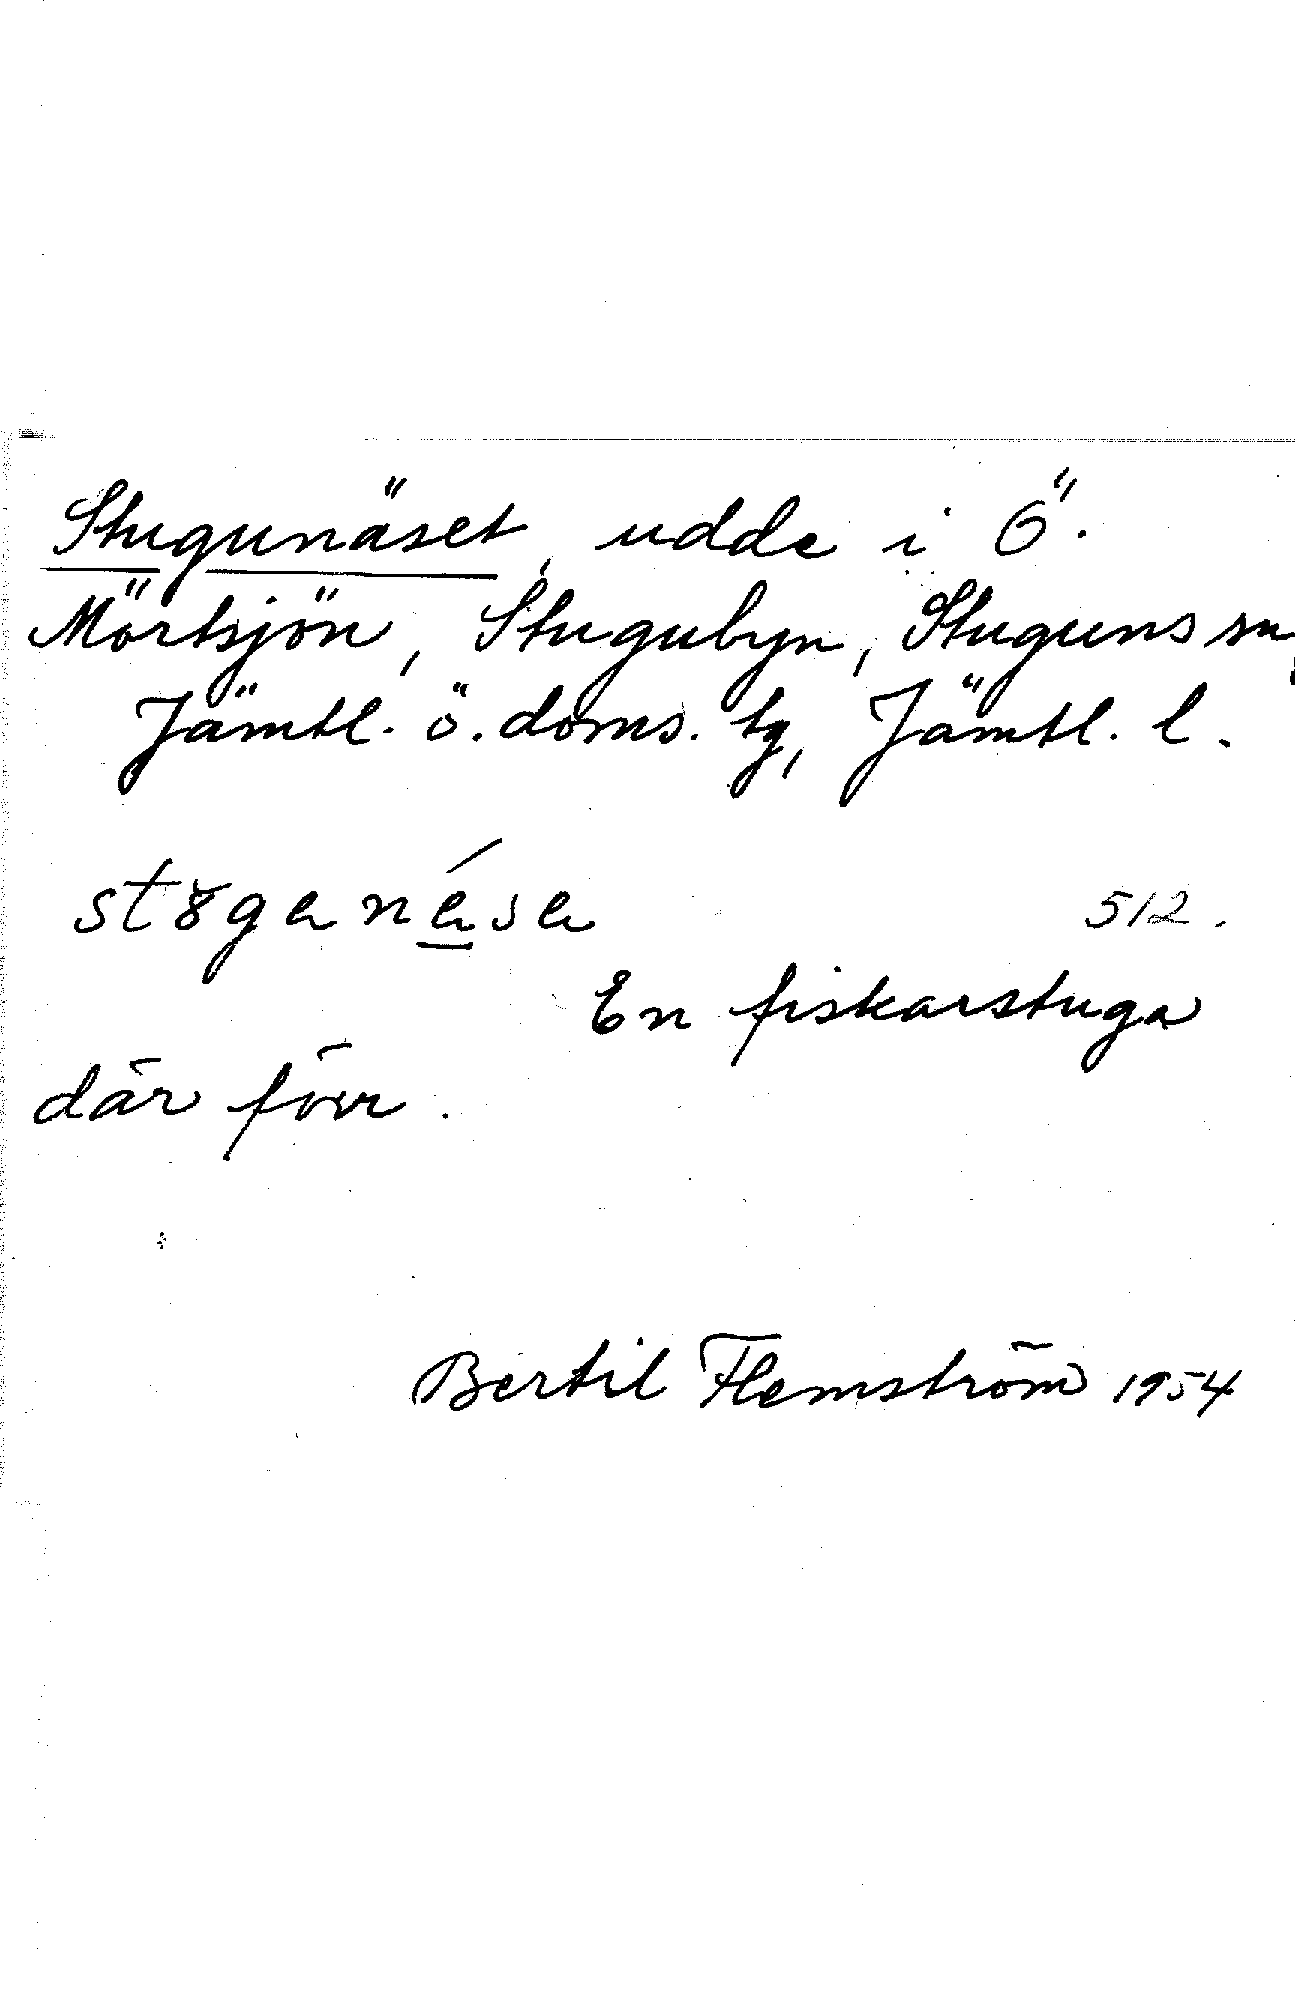 Stugunäset, udde i Ö.
Mörtsjön, Stugubyn, Stuguns sn,
Jämtl. ö. doms. tg, Jämtl. l.
støganésa 512.
En fiskarstuga
där förr.
Bertil Flemström 1954